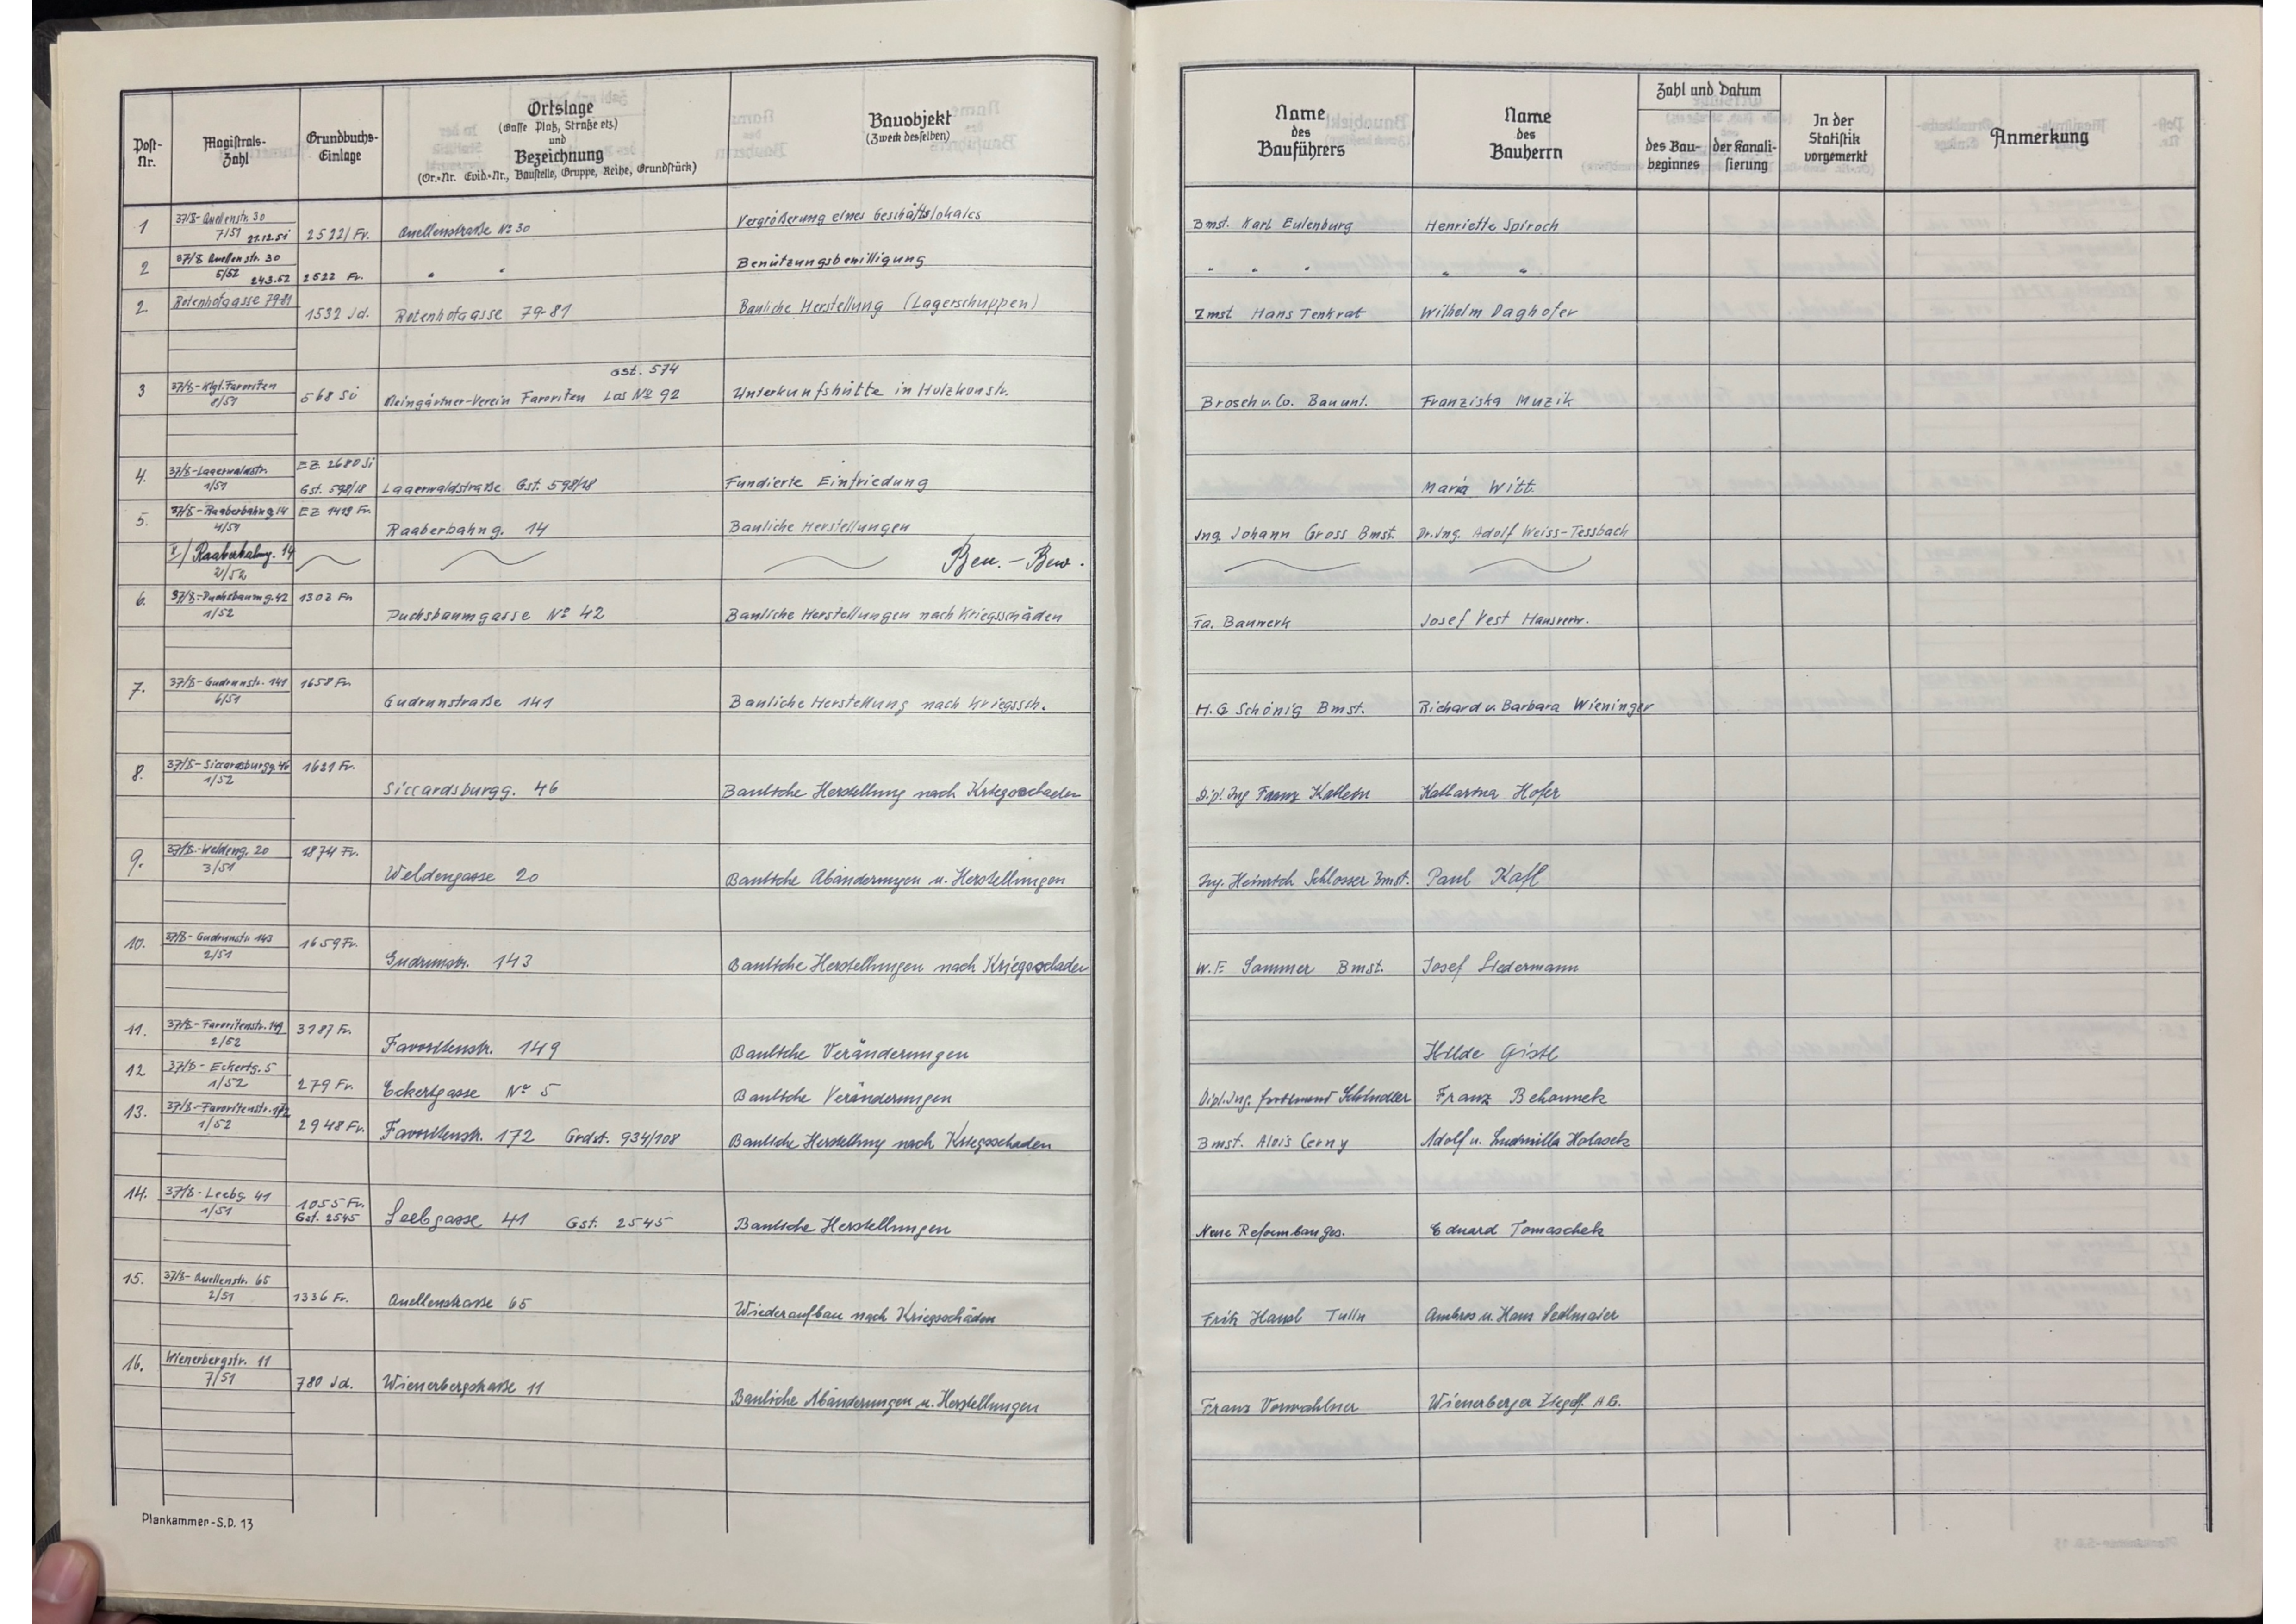 Post-Nr.
Magistrats-Zahl
Grundbuchs-Einlage
Ortslage
(Gasse Platz, Straße etz.)
und
Bezeichnung
(Or.-Nr. Evid.-Nr., Baustelle, Gruppe, Reihe, Grundstück)
Bauobjekt
(Zweck desselben)
Name des Bauführers
Name des Bauherrn
Zahl und Datum
des Baubeginnes
der Kanalisierung
In der Statistik vorgemerkt
Anmerkung
1 37/8-Quellenstr. 30 7/51 27.12.51 2522/Fr. Quellenstraße No 30 Vergrößerung eines Geschäftslokales Bmst. Karl Eulenburg Henriette Spiroch
2 37/8 Quellenstr. 30 5/52 24.3.52 2522 Fr. " " Benützungsbewilligung " " " " "
2. Rotenhofgasse 79-81 1532 Jd. Rotenhofgasse 79-81 Bauliche Herstellung (Lagerschuppen) Zmst. Hans Tenkrat Wilhelm Daghofer
Gst. 574
3 37/8-Klgt. Favoriten 8/51 568 Si Kleingärtner-Verein Favoriten Los No 92 Unterkunfshütte in Holzkonstr. Brosch u. Co. Baunt. Franziska Muzik
4. 37/8-Lagerwaldstr. 1/51 EZ 2680 Si Gst. 598/18 Lagerwaldstraße Gst. 598/18 Fundierte Einfriedung Maria Witt.
5. 37/8-Raaberbahng. 14 4/51 EZ 1419 Fr. Raaberbahng. 14 Bauliche Herstellungen Ing Johann Gross Bmst. Dr. Ing. Adolf Weiss-Tessbach
X/Raaberbahng. 14 2/52 Ben. - Bew.
6. 37/8-Puchsbaumg. 42 1/52 1303 Fr. Puchsbaumgasse No 42 Bauliche Herstellungen nach Kriegsschäden Fa. Bauwerk Josef Vest Hausverw.
7. 37/8-Gudrunstr. 141 6/51 1658 Fr. Gudrunstraße 141 Bauliche Herstellung nach Kriegssch. H.G. Schönig Bmst. Richard u. Barbara Wieninger
8. 37/8-Siccardsburgg. 46 1/52 1631 Fr. Siccardsburgg. 46 Bauliche Herstellung nach Kriegsschaden Dipl. Ing Franz Katharina Hofer
9. 37/8-Weldeng. 20 3/51 1874 Fr. Weldengasse 20 Bauliche Abänderungen u. Herstellungen Ing. Heinrich Schlosser Bmst. Paul Kafl
10. 37/8-Gudrunstr. 143 2/51 1659 Fr. Gudrunstr. 143 Bauliche Herstellungen nach Kriegsschaden W.F. Sammer Bmst. Josef Liedermann
11. 37/8-Favoritenstr. 149 2/52 3187 Fr. Favoritenstr. 149 Bauliche Veränderungen Hilde Gistl
12 37/8-Eckertg. 5 1/52 279 Fr. Eckertgasse No 5 Bauliche Veränderungen Dipl. Ing. Schindler Franz Behounek
13. 37/8-Favoritenstr. 172 1/52 2948 Fr. Favoritenstr. 172 Grdst. 934/108 Bauliche Herstellung nach Kriegsschaden Bmst. Alois Cerny Adolf u. Ludmilla Holasek
14. 37/8-Leebg. 41 1/51 1055 Fr. Gst. 2545 Leebgasse 41 Gst. 2545 Bauliche Herstellungen Neue Reformbauges. Eduard Tomaschek
15. 37/8-Quellenstr. 65 2/51 1336 Fr. Quellenstrasse 65 Wiederaufbau nach Kriegsschäden Fritz Handl Tulln Ambros u. Hans Sedlmaier
16. Wienerbergstr. 11 7/51 780 Jd. Wienerbergstraße 11 Bauliche Abänderungen u. Herstellungen Franz Vorwahlner Wienerberger Ziegelf. A.G.
Plankammer-S.D. 13